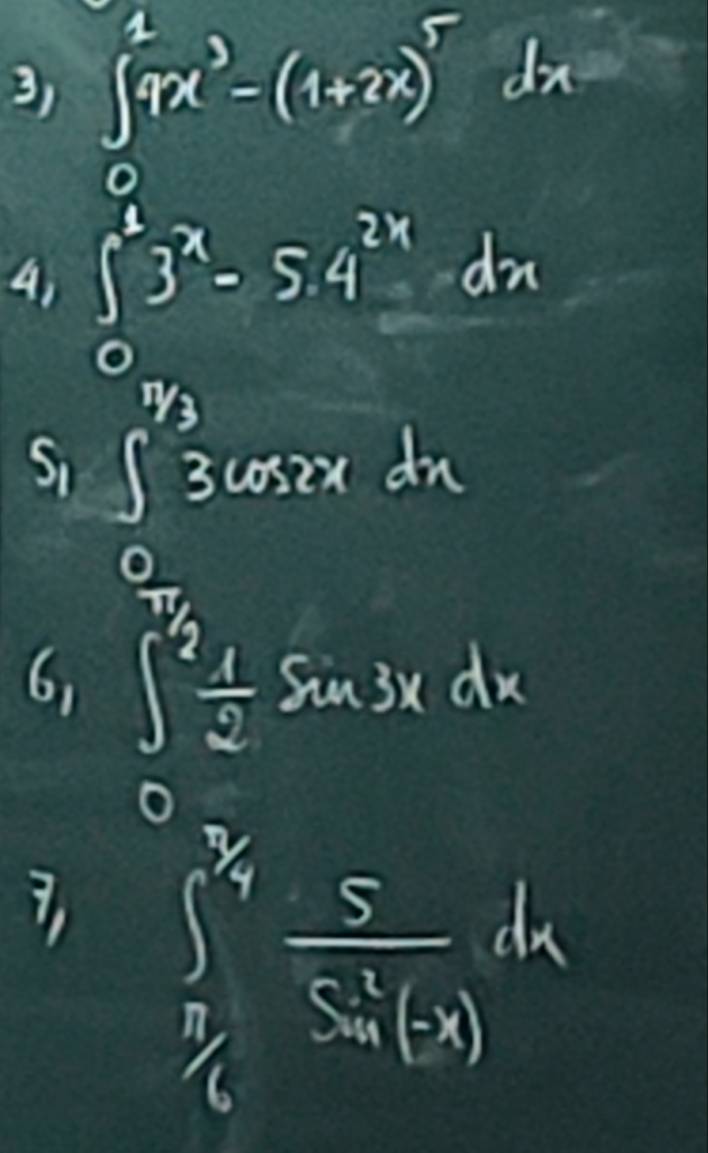 3, ∫₀¹ 4x³ - (1+2x)⁵ dx
4, ∫₀¹ 3ˣ - 5.4²ˣ dx
5, ∫₀^π/3 3cos2x dx
6, ∫₀^π/2 1/2 Sin3x dx
7, ∫_π/6^π/4 5/Sin²(-x) dx